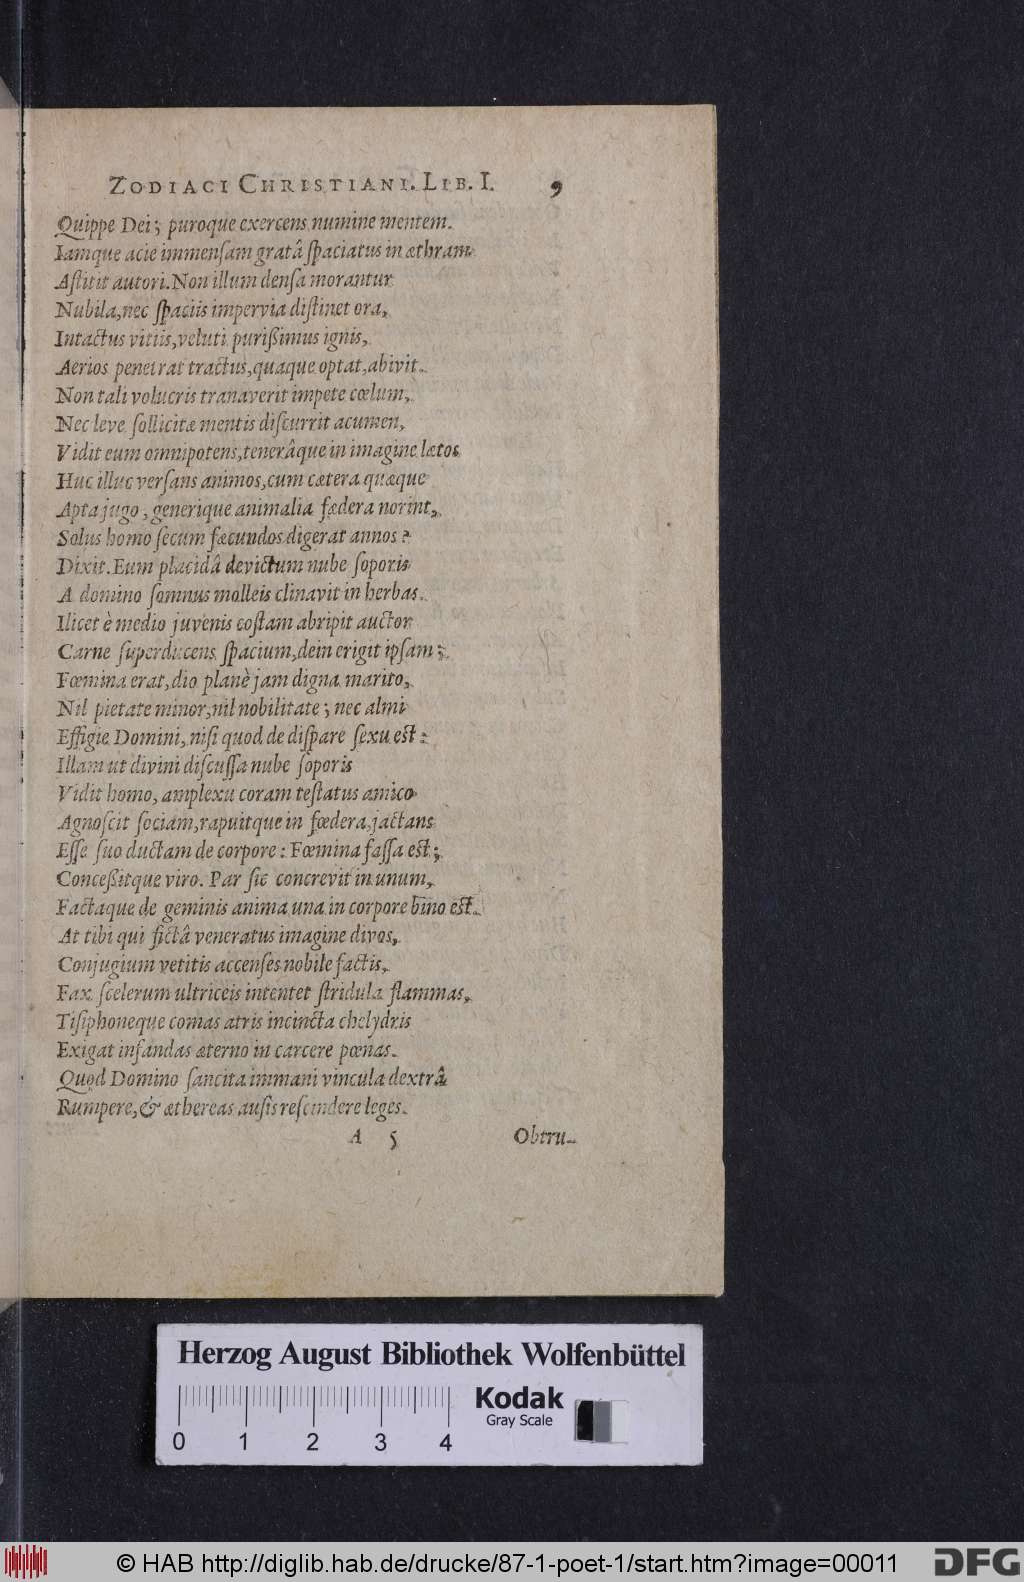 ZODIACI CHRISTIANI. LIB. I. 9
Quippe Dei; puroque exercens numine mentem.
Iamque acie immensam gratâ spaciatus in æthram
Astitit autori. Non illum densa morantur
Nubila, nec spaciis impervia distinet ora,
Intactus vitiis, veluti purißimus ignis,
Aerios penetrat tractus, quaque optat, abivit.
Non tali volucris tranaverit impete cœlum,
Nec leve sollicitæ mentis discurrit acumen,
Vidit eum omnipotens, tenerâque in imagine lætos
Huc illuc versans animos, cum cætera quæque
Apta jugo, generique animalia fædera norint,
Solus homo secum fæcundos digerat annos?
Dixit. Eum placidâ devictum nube soporis
A domino somnus molleis clinavit in herbas.
Ilicet è medio juvenis costam abripit auctor
Carne superducens spacium, dein erigit ipsam;
Fœmina erat, dio planè jam digna marito,
Nil pietate minor, nil nobilitate; nec almi
Effigie Domini, nisi quod de dispare sexu est:
Illam ut divini discussa nube soporis
Vidit homo, amplexu coram testatus amico
Agnoscit sociam, rapuitque in fœdera, jactans
Esse suo ductam de corpore: Fœmina fassa est;
Conceßitque viro. Par sic concrevit in unum,
Factaque de geminis anima una in corpore bino est.
At tibi qui fictâ veneratus imagine divos,
Conjugium vetitis accenses nobile factis,
Fax scelerum ultriceis intentet stridula flammas,
Tisiphoneque comas atris incincta chelydris
Exigat infandas æterno in carcere pœnas.
Quod Domino sancita immani vincula dextrâ
Rumpere, & æthereas ausis rescindere leges.
A 5 Obtru-
Herzog August Bibliothek Wolfenbüttel
Kodak
Gray Scale
0 1 2 3 4
© HAB http://diglib.hab.de/drucke/87-1-poet-1/start.htm?image=00011
DFG